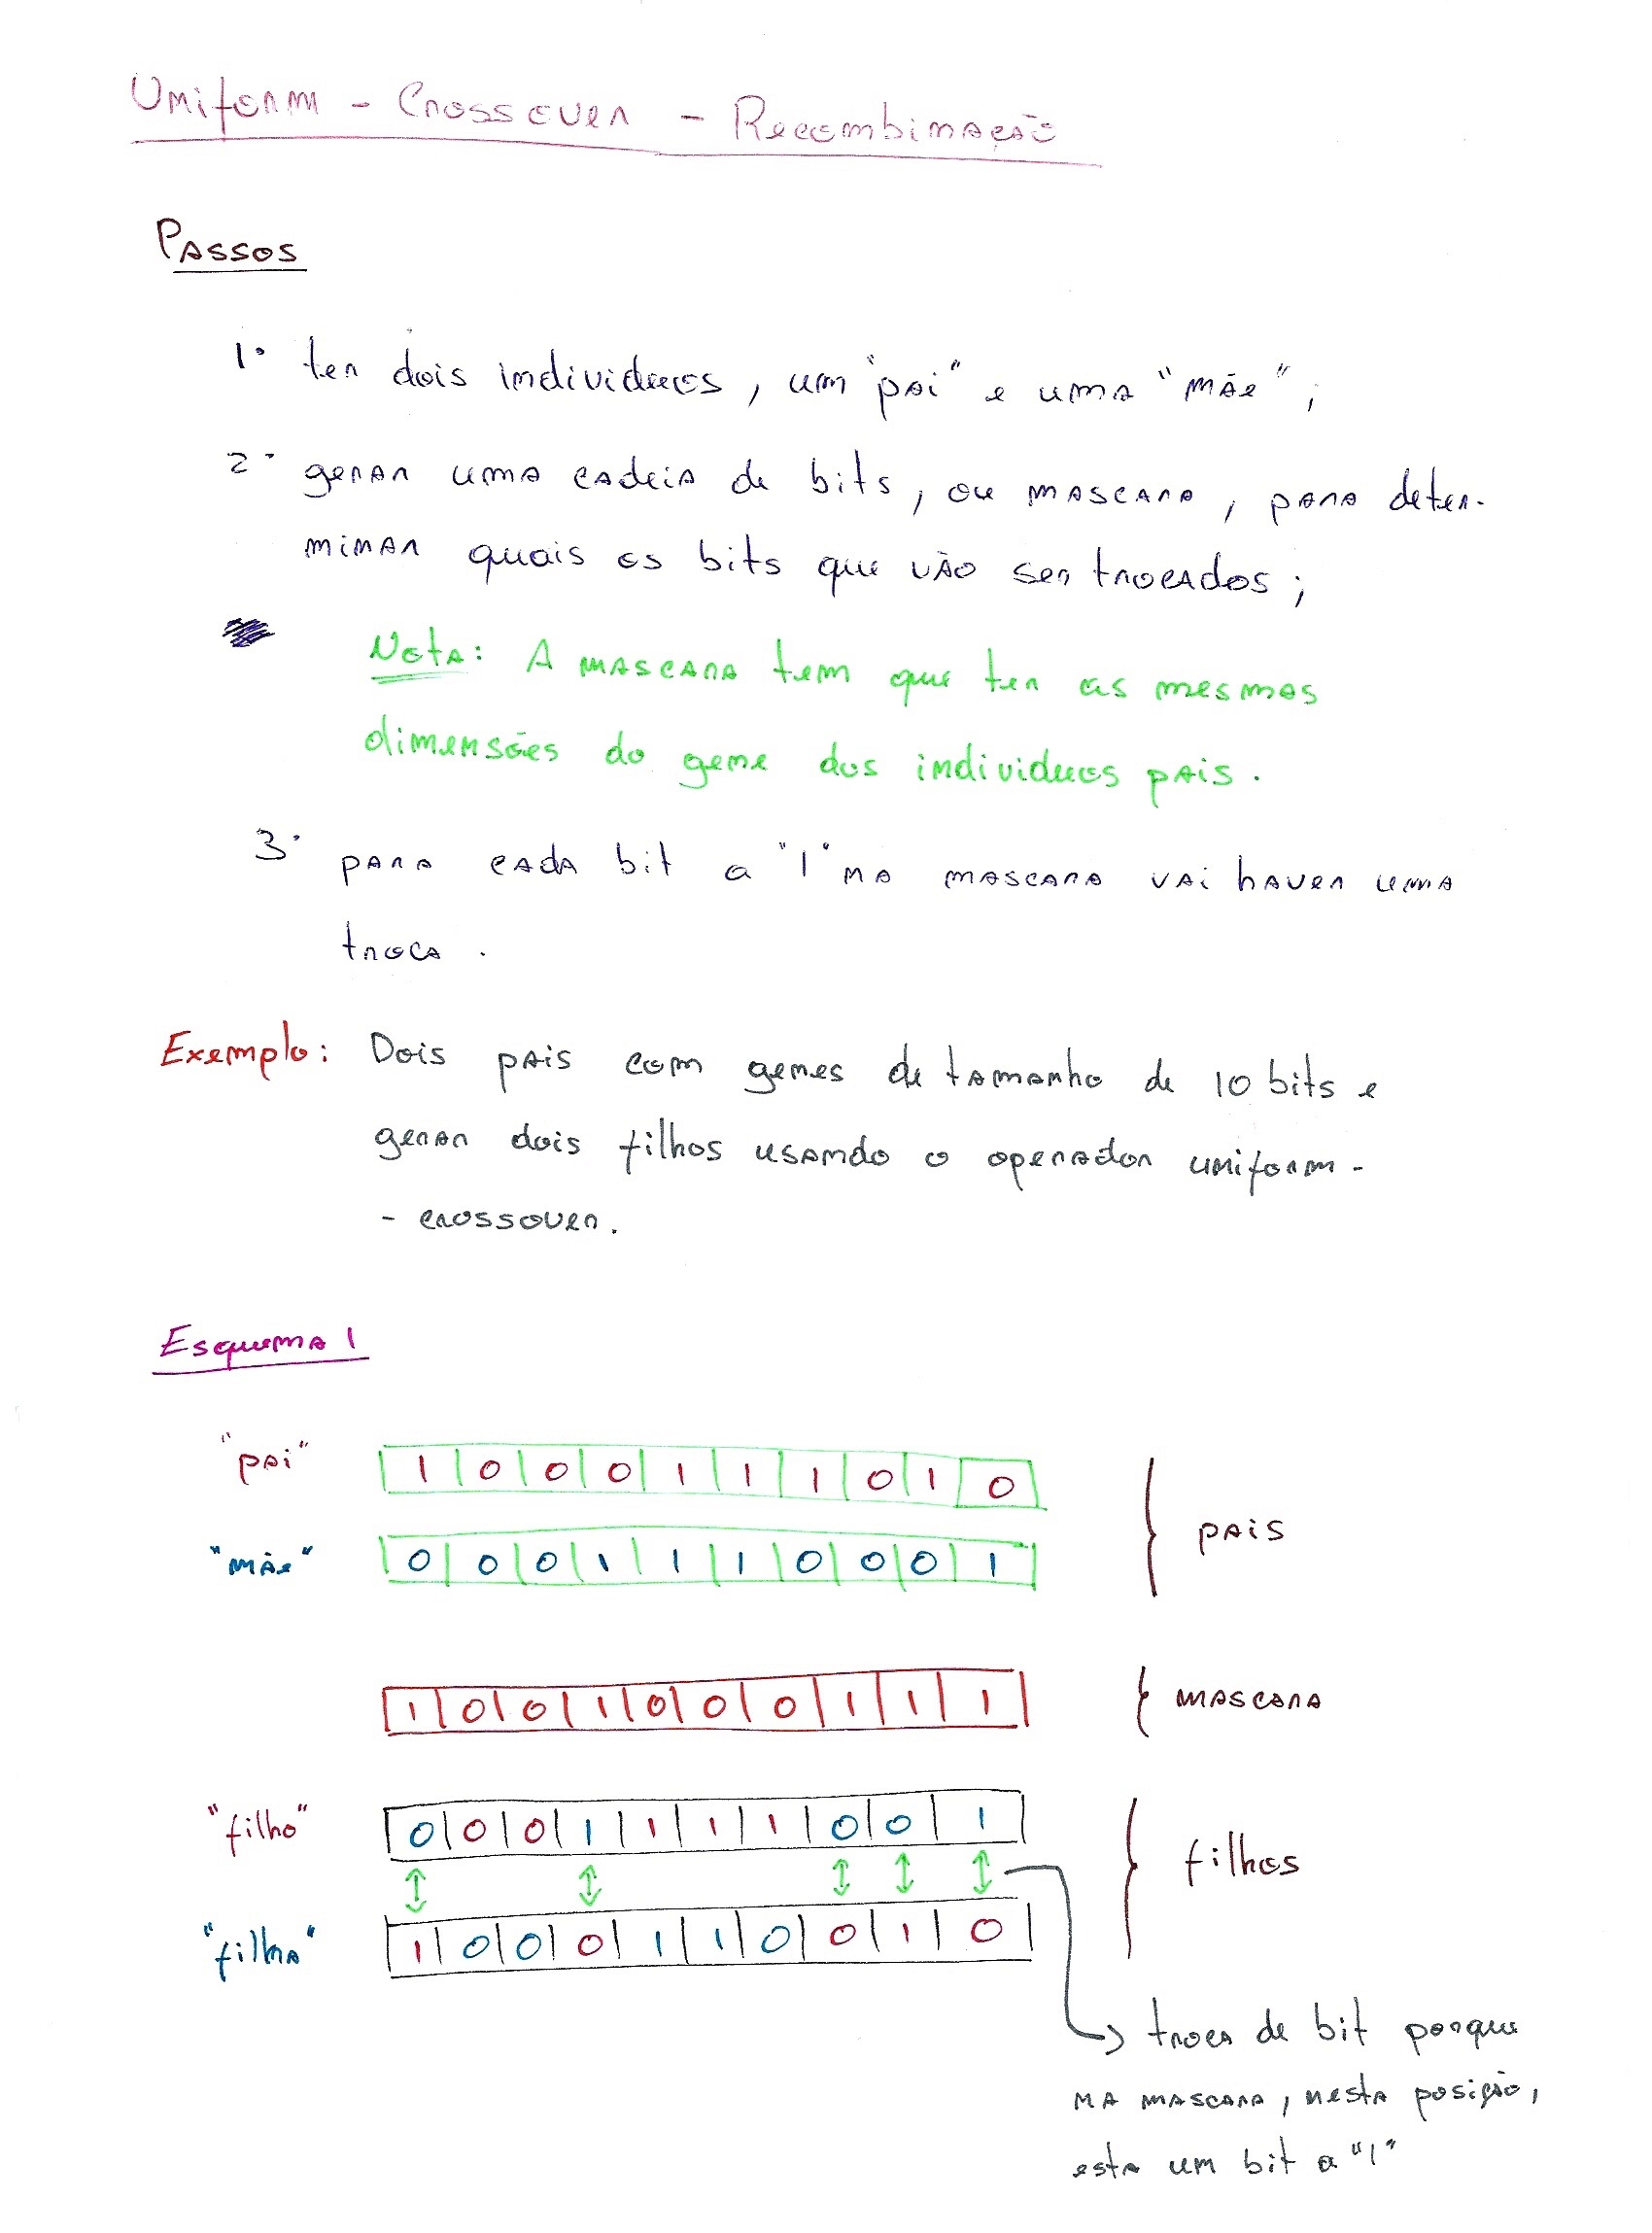 Uniform - Crossover - Recombinação
Passos
1. ter dois individuos, um "pai" e uma "mãe";
2. gerar uma cadeia de bits, ou mascara, para deter-
minar quais os bits que vão ser trocados;
Nota: A mascara tem que ter as mesmas
dimensões do gene dos individuos pais.
3. para cada bit a "1" na mascara vai haver uma
troca.
Exemplo: Dois pais com genes de tamanho de 10 bits e
gerar dois filhos usando o operador uniform-
- crossover.
Esquema 1
"pai" 1 0 0 0 1 1 1 0 1 0
"mãe" 0 0 0 1 1 1 0 0 0 1 pais
1 0 0 1 0 0 0 1 1 1 mascara
"filho" 0 0 0 1 1 1 1 0 0 1
filhos
"filha" 1 0 0 0 1 1 0 0 1 0
troca de bit porque
na mascara, nesta posição,
esta um bit a "1"